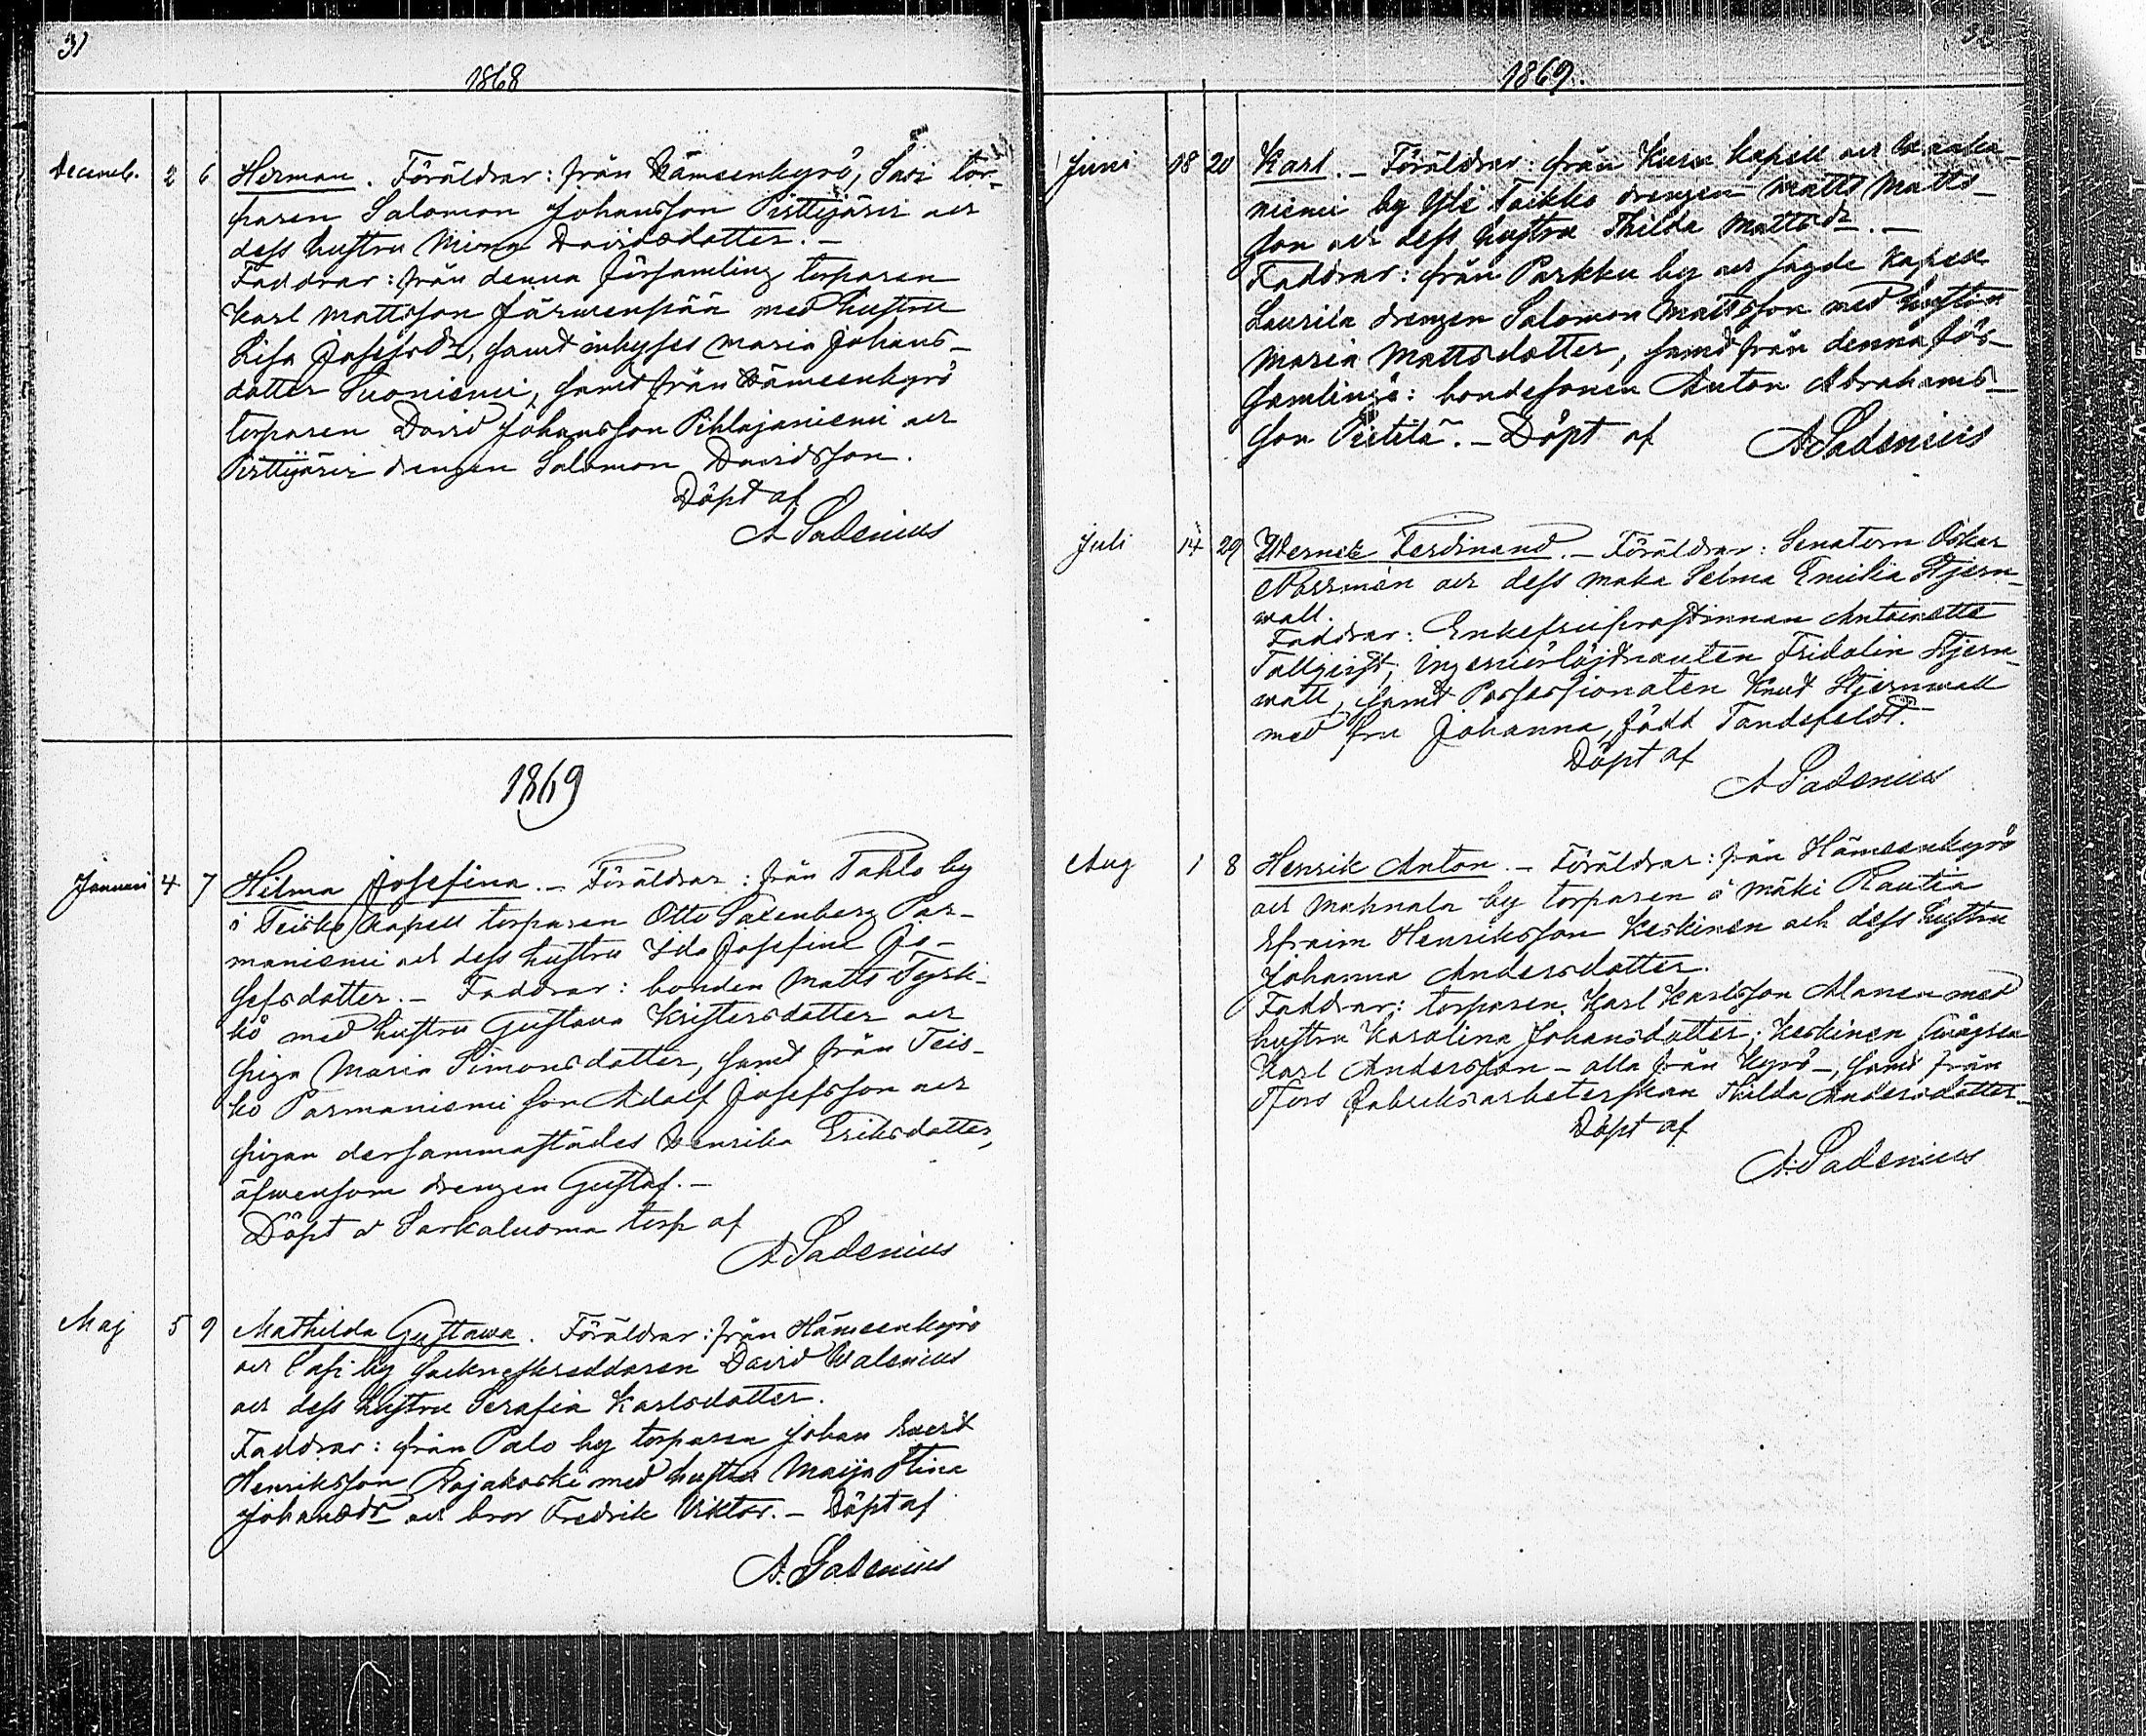 31
1868
Decemb. 2 6 Herman. Föräldrar: från Hämeenkyrö, Sari tor-
paren Salomon Johansson Pirttijärvi och
dess hustru Miina Davidsdotter. –
Faddrar: från denna församling torparen
Karl Mattsson Järwenpää med hustru
Lisa Josefsdr, samt inhyses Maria Johans-
dotter Suoniemi, samt från Hämeenkyrö
torparen David Johansson Pihlajaniemi och
Pirttijärvi drengen Salomon Davidsson.
Döpt af
A Sadenius
1869
Januari 4 7 Hilma Josefina. – Föräldrar: från Pahlo by
i Teisko kapell torparen Otto Saxenberg Par-
maniemi och dess hustru Ida Josefina Jo-
sefsdotter. – Faddrar: bonden Matts Tyrk-
kö med hustru Gustava Kristersdotter och
piga Maria Simonsdotter, samt från Teis-
ko Parmaniemi son Adolf Josefsson och
pigan dersammastädes Henrika Eriksdotter,
äfwensom drengen Gustaf. –
Döpt å Sarkaluoma torp af
A Sadenius
Maj 5 9 Mathilda Gustawa. Föräldrar: från Hämeenkyrö
och Lasi by sockneskreddaren David Walenius
och dess hustru Serafia Karlsdotter.
Faddrar: från Palo by torparen Johan Evert
Henriksson Rajakoski med hustru Maija Stina
Johansdr och bror Fredrik Viktor. – Döpt af
A. Sadenius
32
1869.
Juni 18 20 Karl. – Föräldrar: från Kuru kapell och Waaka-
niemi by Yli Taikko drengen Matts Matts-
son och dess hustru Thilda Mattsdr. –
Faddrar: från Parkku by och sagde kapell
Laurila drengen Salomon Mattsson med hustru
Maria Mattsdotter, samt från denna för-
samling: bondesonen Anton Abrahams-
son Pietilä. – Döpt af A Sadenius
Juli 14 29 Werner Ferdinand. – Föräldrar: Senatorn Oskar
Norrmén och dess maka Selma Emilia Stjern-
wall.
Faddrar: Enkefruprostinnan Antoinette
Tallqvist, ingeniörlöjtnanten Fridolin Stjern-
wall, samt Possessionaten Knut Stjernwall
med fru Johanna, född Tandefeldt.
Döpt af
A Sadenius
Aug 1 8 Henrik Anton. – Föräldrar: från Hämeenkyrö
och Mahnala by torparen å mäki Rautia
Efraim Henriksson Keskinen och dess hustru
Johanna Andersdotter.
Faddrar: torparen Karl Karlsson Alanen med
hustru Karolina Johansdotter; Keskinen swågren
Karl Andersson – alla från Kyrö –, samt från
Tfors fabriksarbeterskan Thilda Andersdotter. –
Döpt af
A. Sadenius